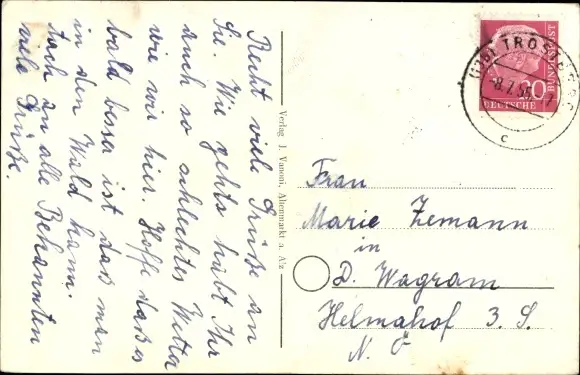 Recht viele Grüße an
Sie. Wie gehts habt Ihr
auch so schlechtes Wetter
wie wir hier. Hoffe daß es
bald besser ist daß man
in den Wald kann.
Auch an alle Bekannten
viele Grüße.
Verlag J. Vanoni, Altenmarkt a. Alz
(13b) TROSTBERG
8.7.56
c
DEUTSCHE
BUNDESPOST
20
Frau
Marie Zemann
in
D. Wagram
Helmahof 3. S.
N. Ö